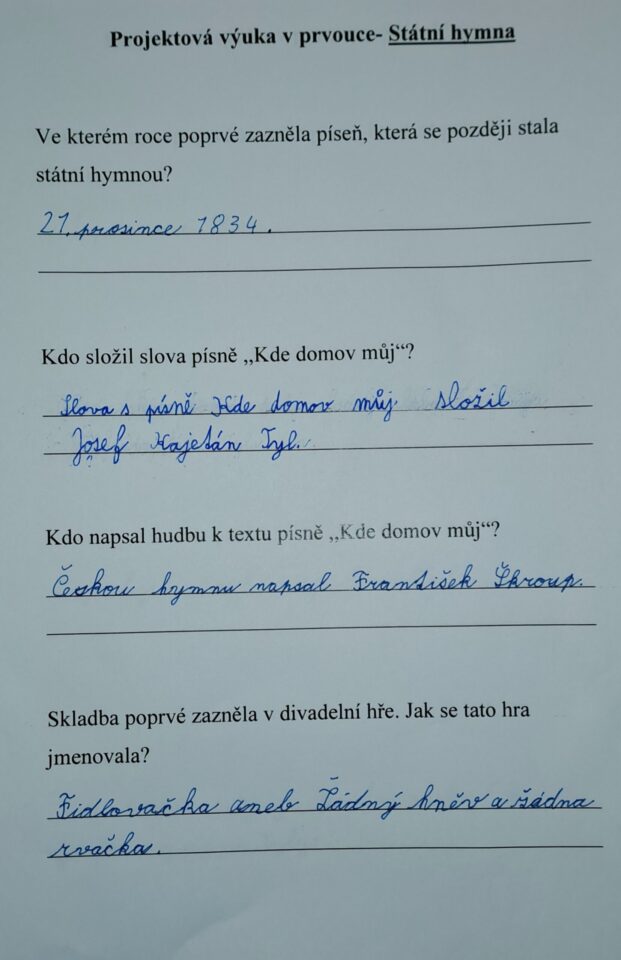 Projektová výuka v prvouce- Státní hymna
Ve kterém roce poprvé zazněla píseň, která se později stala
státní hymnou?
21. prosince 1834.
Kdo složil slova písně ,,Kde domov můj“?
Slova s písně Kde domov můj. složil
Josef Kajetán Tyl.
Kdo napsal hudbu k textu písně ,,Kde domov můj“?
Českou hymnu napsal František Škroup.
Skladba poprvé zazněla v divadelní hře. Jak se tato hra
jmenovala?
Fidlovačka aneb Žádný hněv a žádna
rvačka.